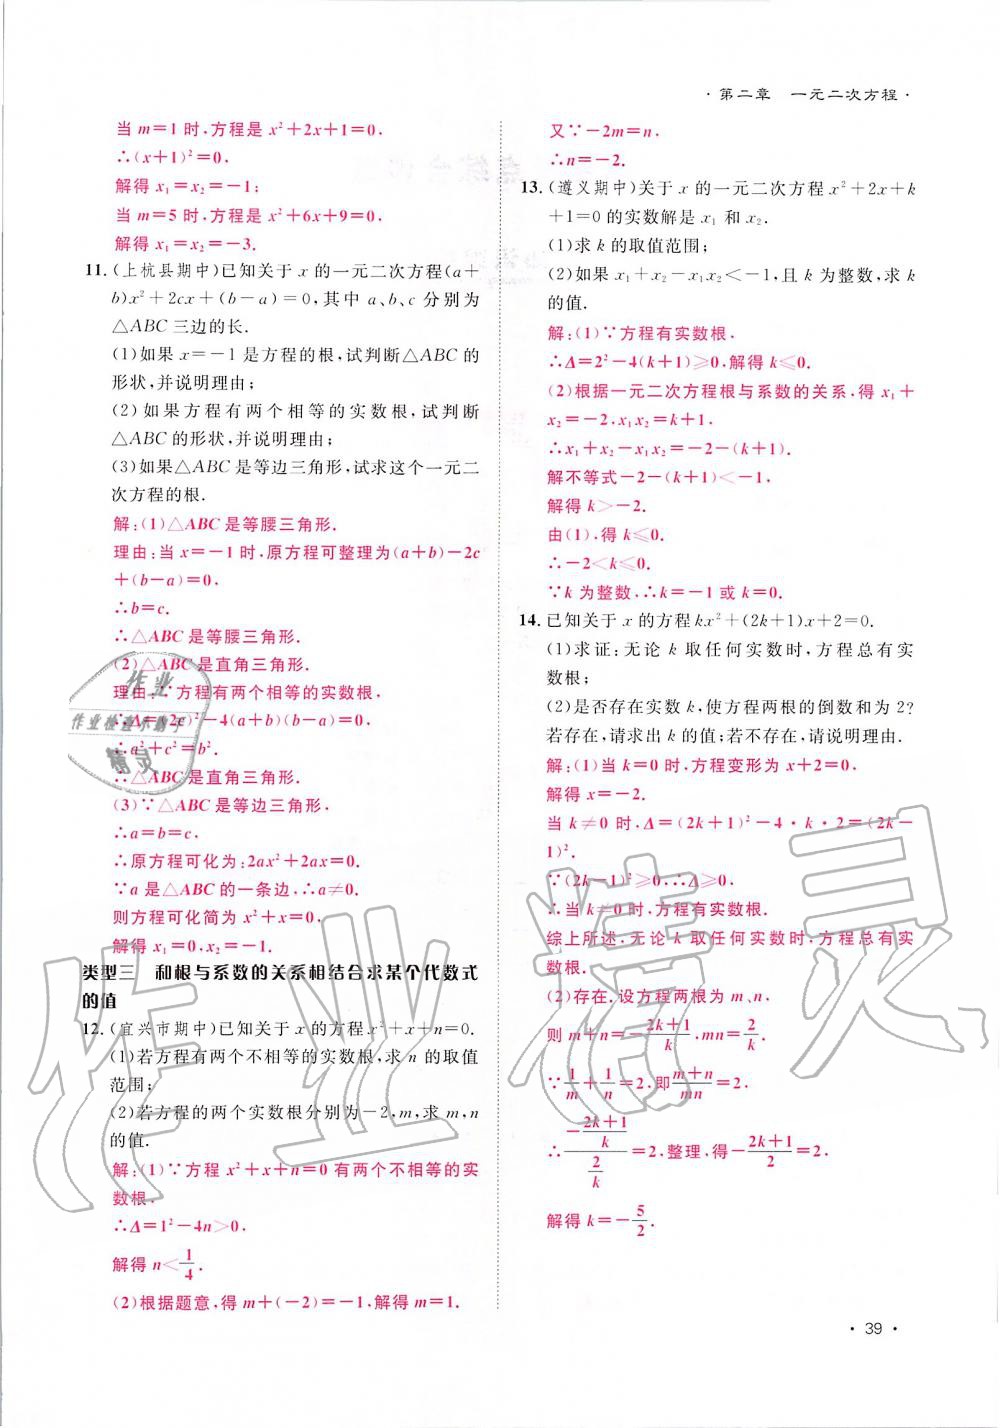 · 第二章 一元二次方程 ·
当 m=1 时,方程是 x²+2x+1=0.
∴(x+1)²=0.
解得 x₁=x₂=-1;
当 m=5 时,方程是 x²+6x+9=0.
解得 x₁=x₂=-3.
11. (上杭县期中)已知关于 x 的一元二次方程(a+
b)x²+2cx+(b-a)=0,其中 a、b、c 分别为
△ABC 三边的长.
(1)如果 x=-1 是方程的根,试判断△ABC 的
形状,并说明理由;
(2)如果方程有两个相等的实数根,试判断
△ABC 的形状,并说明理由;
(3)如果△ABC 是等边三角形,试求这个一元二
次方程的根.
解:(1)△ABC 是等腰三角形.
理由:当 x=-1 时,原方程可整理为(a+b)-2c
+(b-a)=0,
∴b=c.
∴△ABC 是等腰三角形.
(2)△ABC 是直角三角形.
理由:∵方程有两个相等的实数根,
∴Δ=(2c)²-4(a+b)(b-a)=0.
∴a²+c²=b².
∴△ABC 是直角三角形.
(3)∵△ABC 是等边三角形,
∴a=b=c.
∴原方程可化为:2ax²+2ax=0.
∵a 是△ABC 的一条边,∴a≠0.
则方程可化简为 x²+x=0.
解得 x₁=0,x₂=-1.
类型三 和根与系数的关系相结合求某个代数式
的值
12. (宜兴市期中)已知关于 x 的方程 x²+x+n=0.
(1)若方程有两个不相等的实数根,求 n 的取值
范围;
(2)若方程的两个实数根分别为-2,m,求 m,n
的值.
解:(1)∵方程 x²+x+n=0 有两个不相等的实
数根,
∴Δ=1²-4n>0.
解得 n<1/4.
(2)根据题意,得 m+(-2)=-1,解得 m=1.
又∵-2m=n.
∴n=-2.
13. (遵义期中)关于 x 的一元二次方程 x²+2x+k
+1=0 的实数解是 x₁ 和 x₂.
(1)求 k 的取值范围;
(2)如果 x₁+x₂-x₁x₂<-1,且 k 为整数,求 k
的值.
解:(1)∵方程有实数根.
∴Δ=2²-4(k+1)≥0,解得 k≤0.
(2)根据一元二次方程根与系数的关系,得 x₁+
x₂=-2,x₁x₂=k+1.
∴x₁+x₂-x₁x₂=-2-(k+1).
解不等式-2-(k+1)<-1,
解得 k>-2.
由(1),得 k≤0.
∴-2<k≤0.
∵k 为整数,∴k=-1 或 k=0.
14. 已知关于 x 的方程 kx²+(2k+1)x+2=0.
(1)求证:无论 k 取任何实数时,方程总有实
数根;
(2)是否存在实数 k,使方程两根的倒数和为 2?
若存在,请求出 k 的值;若不存在,请说明理由.
解:(1)当 k=0 时,方程变形为 x+2=0.
解得 x=-2.
当 k≠0 时,Δ=(2k+1)²-4·k·2=(2k-
1)².
∵(2k-1)²≥0,∴Δ≥0.
∴当 k≠0 时,方程有实数根.
综上所述,无论 k 取任何实数时,方程总有实
数根.
(2)存在.设方程两根为 m、n,
则 m+n=-(2k+1)/k,mn=2/k.
∵1/m+1/n=2,即(m+n)/mn=2.
∴(-(2k+1)/k)/(2/k)=2,整理,得-(2k+1)/2=2.
解得 k=-5/2.
· 39 ·
作业
作业检查小助手
精灵
作业精灵